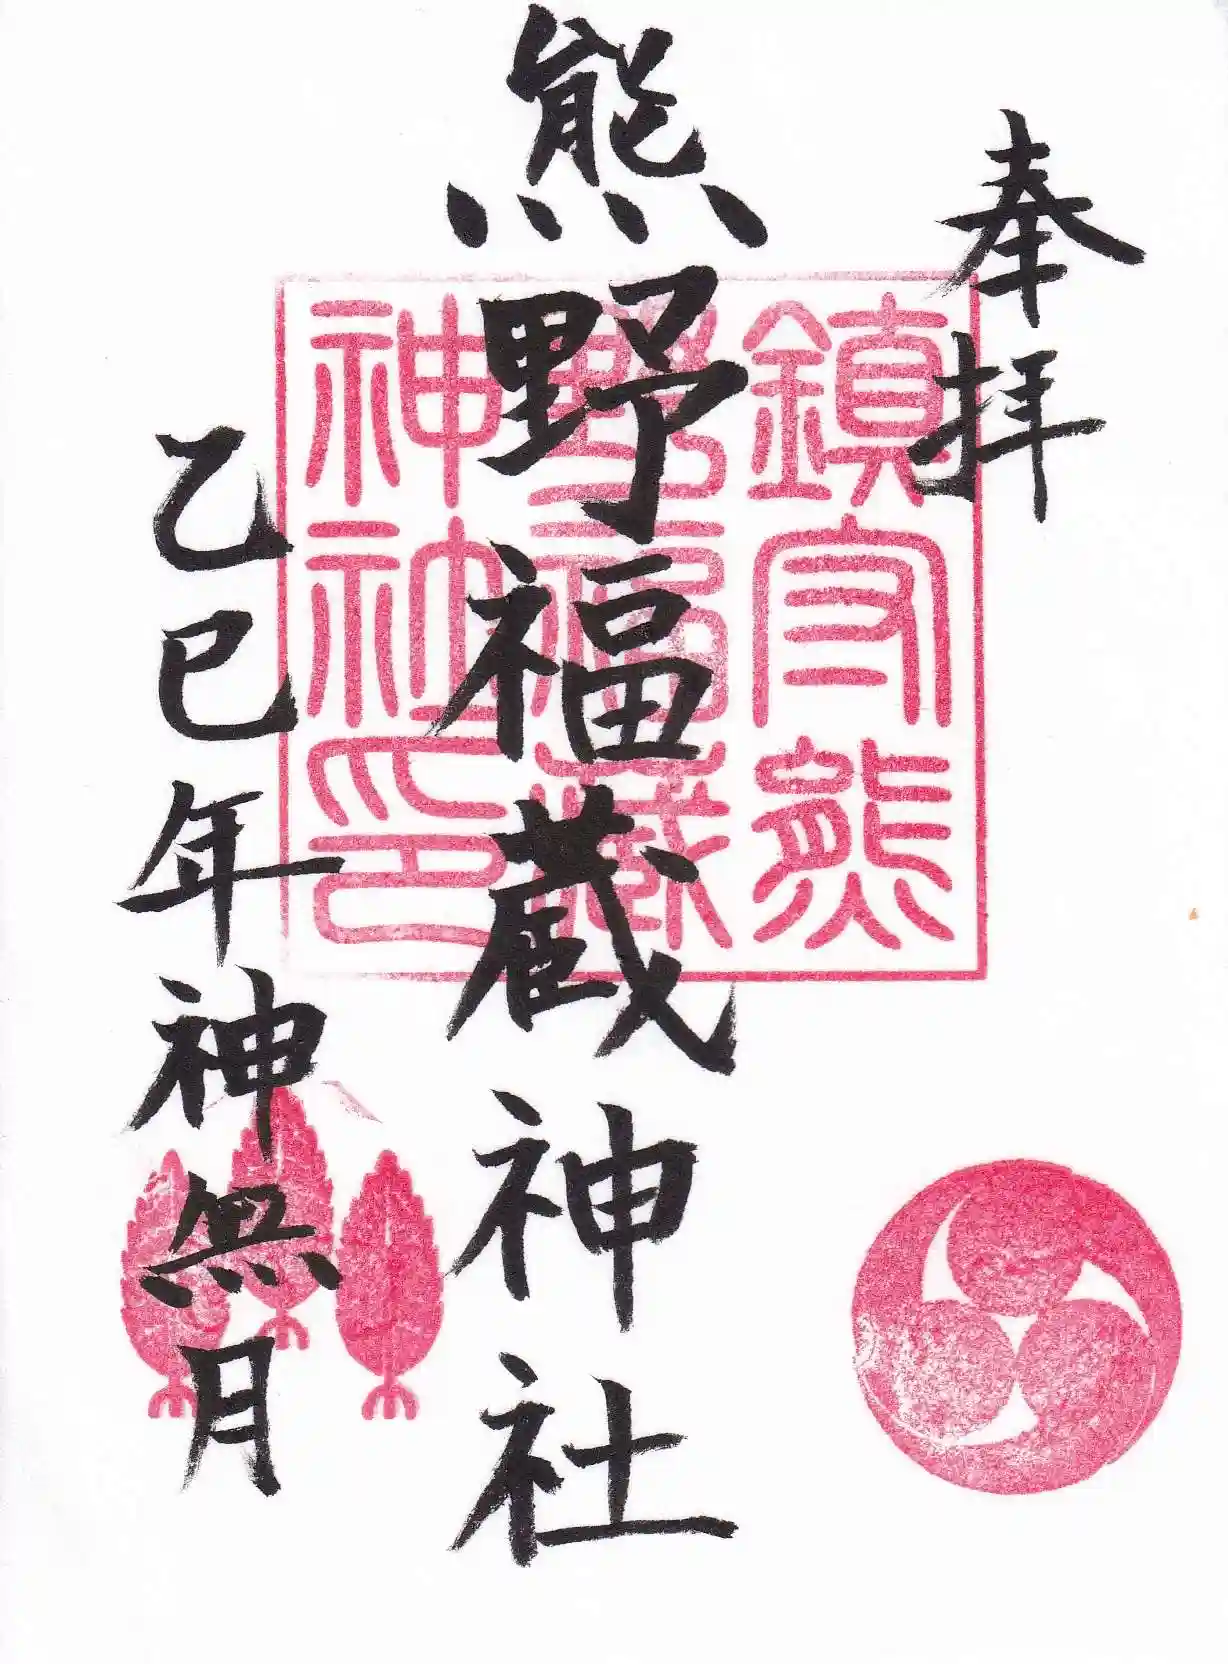 奉拝
鎮守熊
野福蔵
神社印
熊野福蔵神社
乙巳年神無月